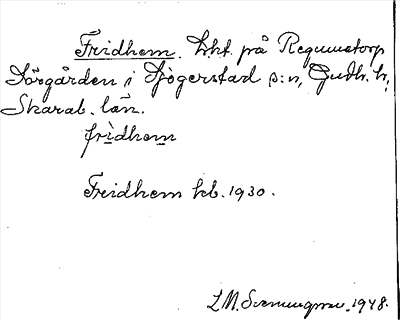 Fridhem. Lht. på Regumatorp
Sörgården i Sjogerstad s:n, Gudh. h;
Skarab. län.
fridhem
Fridhem kb. 1930.
L M. Svenungsson. 1948.